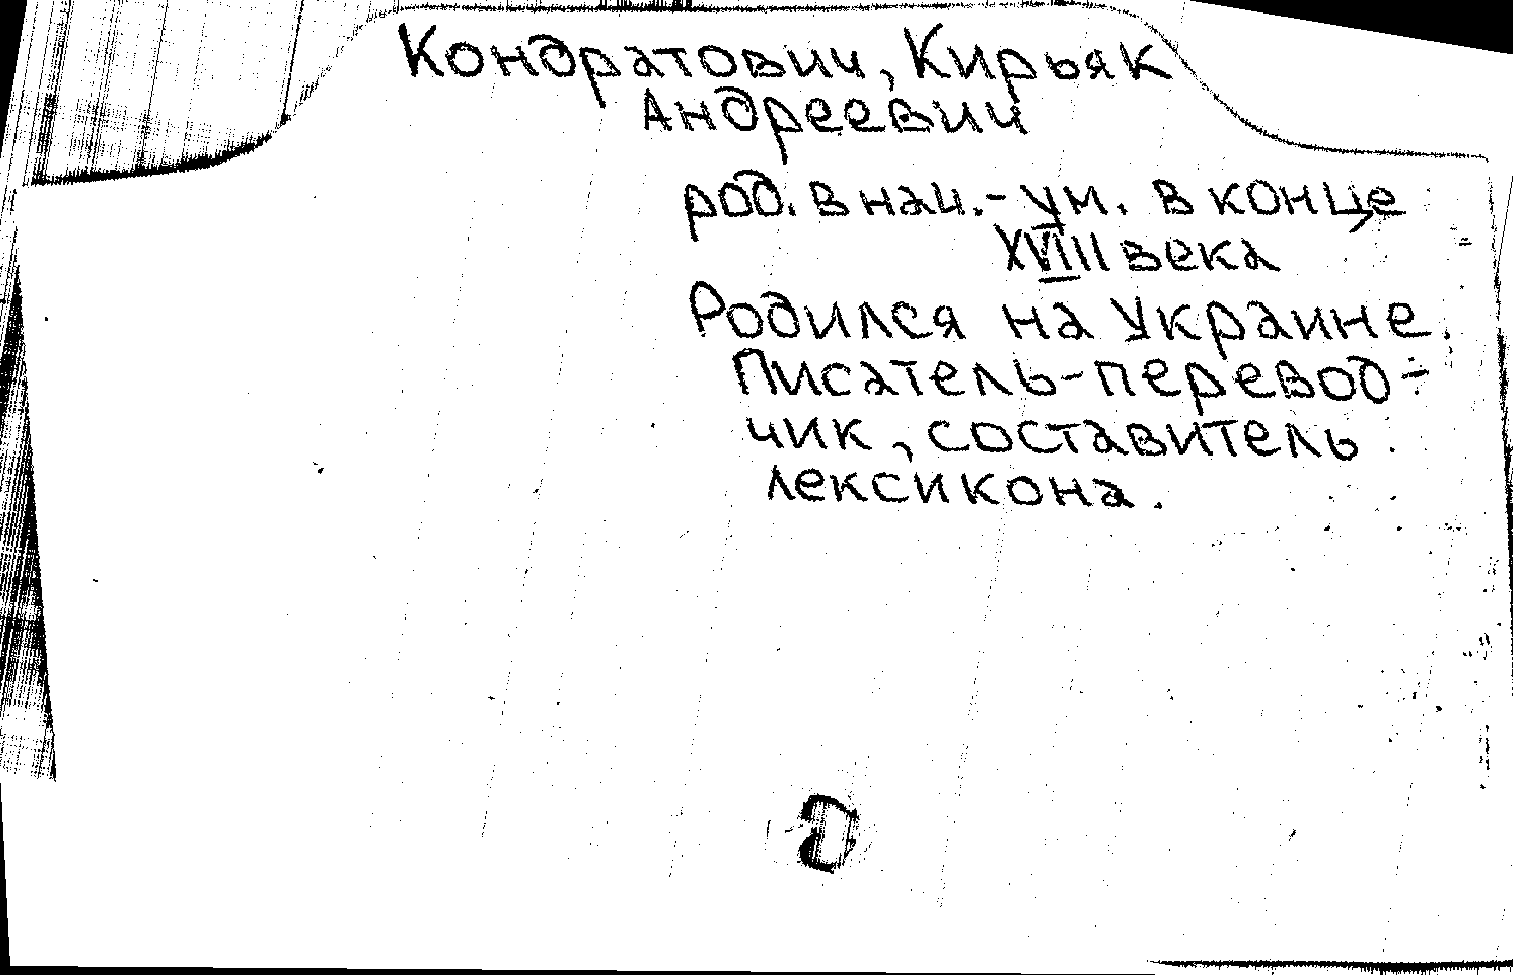 Кондратович, Кирьяк
Андреевич
род. в нач.- ум. в конце
XVIII века
Родился на Украине.
Писатель-перевод-
чик, составитель
лексикона.